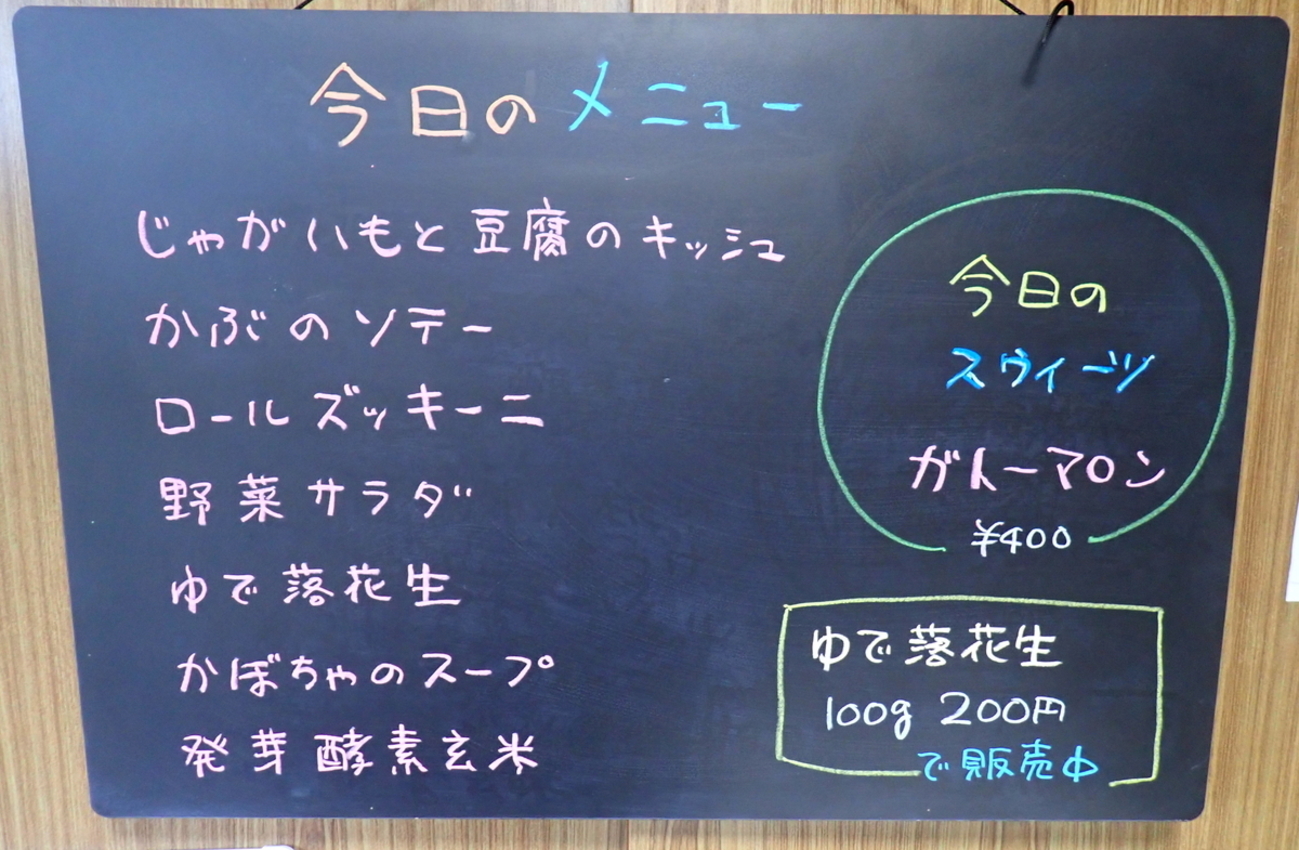 今日のメニュー
じゃがいもと豆腐のキッシュ
かぶのソテー
ロールズッキーニ
野菜サラダ
ゆで落花生
かぼちゃのスープ
発芽酵素玄米
今日の
スウィーツ
ガトーマロン
¥400
ゆで落花生
100g 200円
で販売中